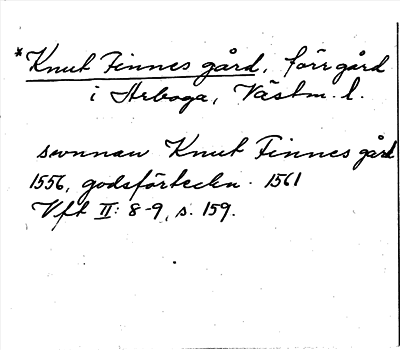 *Knut Finnes gård, förr gård
i Arboga, Västm. l.
swnnan Knut Finnes gård
1556, godsförteckn. 1561
Vft II: 8-9, s. 159.